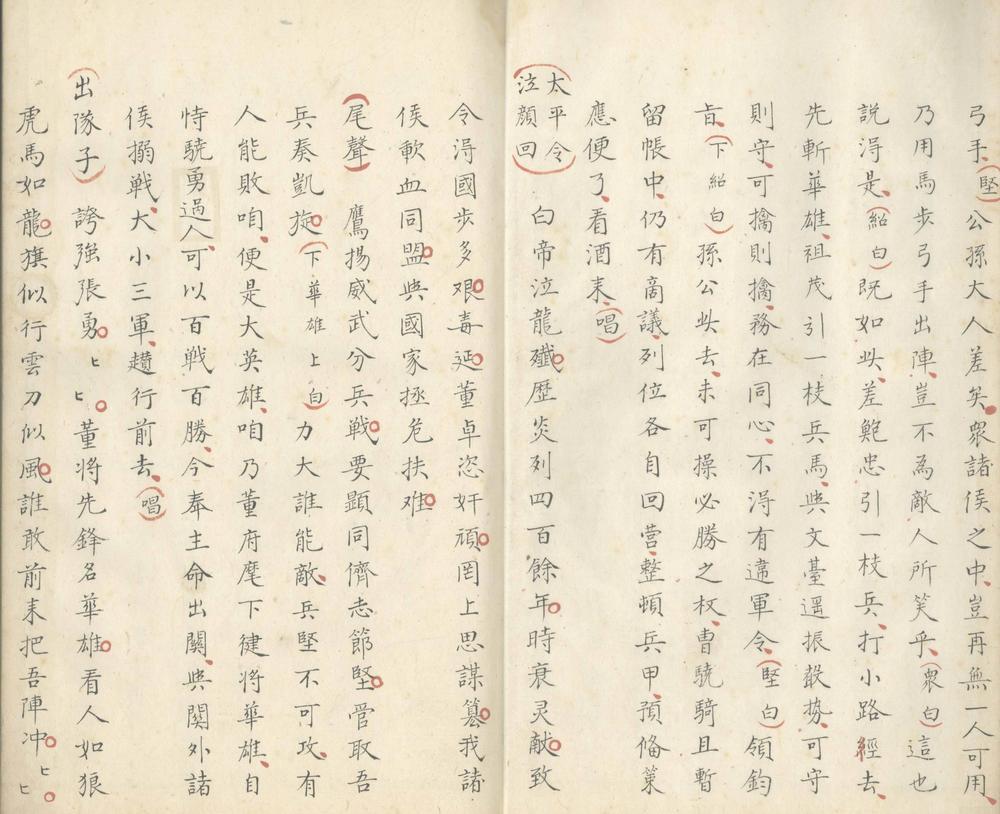 弓手(堅)公孫大人差矣衆諸侯之中豈再無一人可用
乃用馬步弓手出陣豈不為敵人所笑乎(衆白)這也
說淂是(紹白)既如此差鮑忠引一枝兵打小路經去
先斬華雄祖茂引一枝兵馬與文臺遥振聲势可守
則守可擒則擒務在同心不淂有違軍令(堅白)領鈞
旨(下紹白)孫公此去未可操必勝之权曹驍騎且暫
留帳中仍有商議列位各自回营整頓兵甲預俻策
應便了看酒来(唱)
(太平令泣顏回)白帝泣龍殲歷炎列四百餘年時衰灵献致
令淂國步多艰毒延董卓恣奸頑罔上思謀篡我諸
侯歃血同盟與國家拯危扶难
(尾聲)鷹揚威武分兵戰要顕同儕志節堅管取吾
兵奏凱旋(下華雄上白)力大誰能敵兵堅不可攻有
人能敗咱便是大英雄咱乃董府麾下健将華雄自
恃驍勇過人可以百戰百勝今奉主命出關與關外諸
侯搦戰大小三軍趲行前去(唱)
(出隊子)誇強張勇匕匕董将先鋒名華雄看人如狼
虎馬如龍旗似行雲刀似風誰敢前来把吾陣冲匕匕